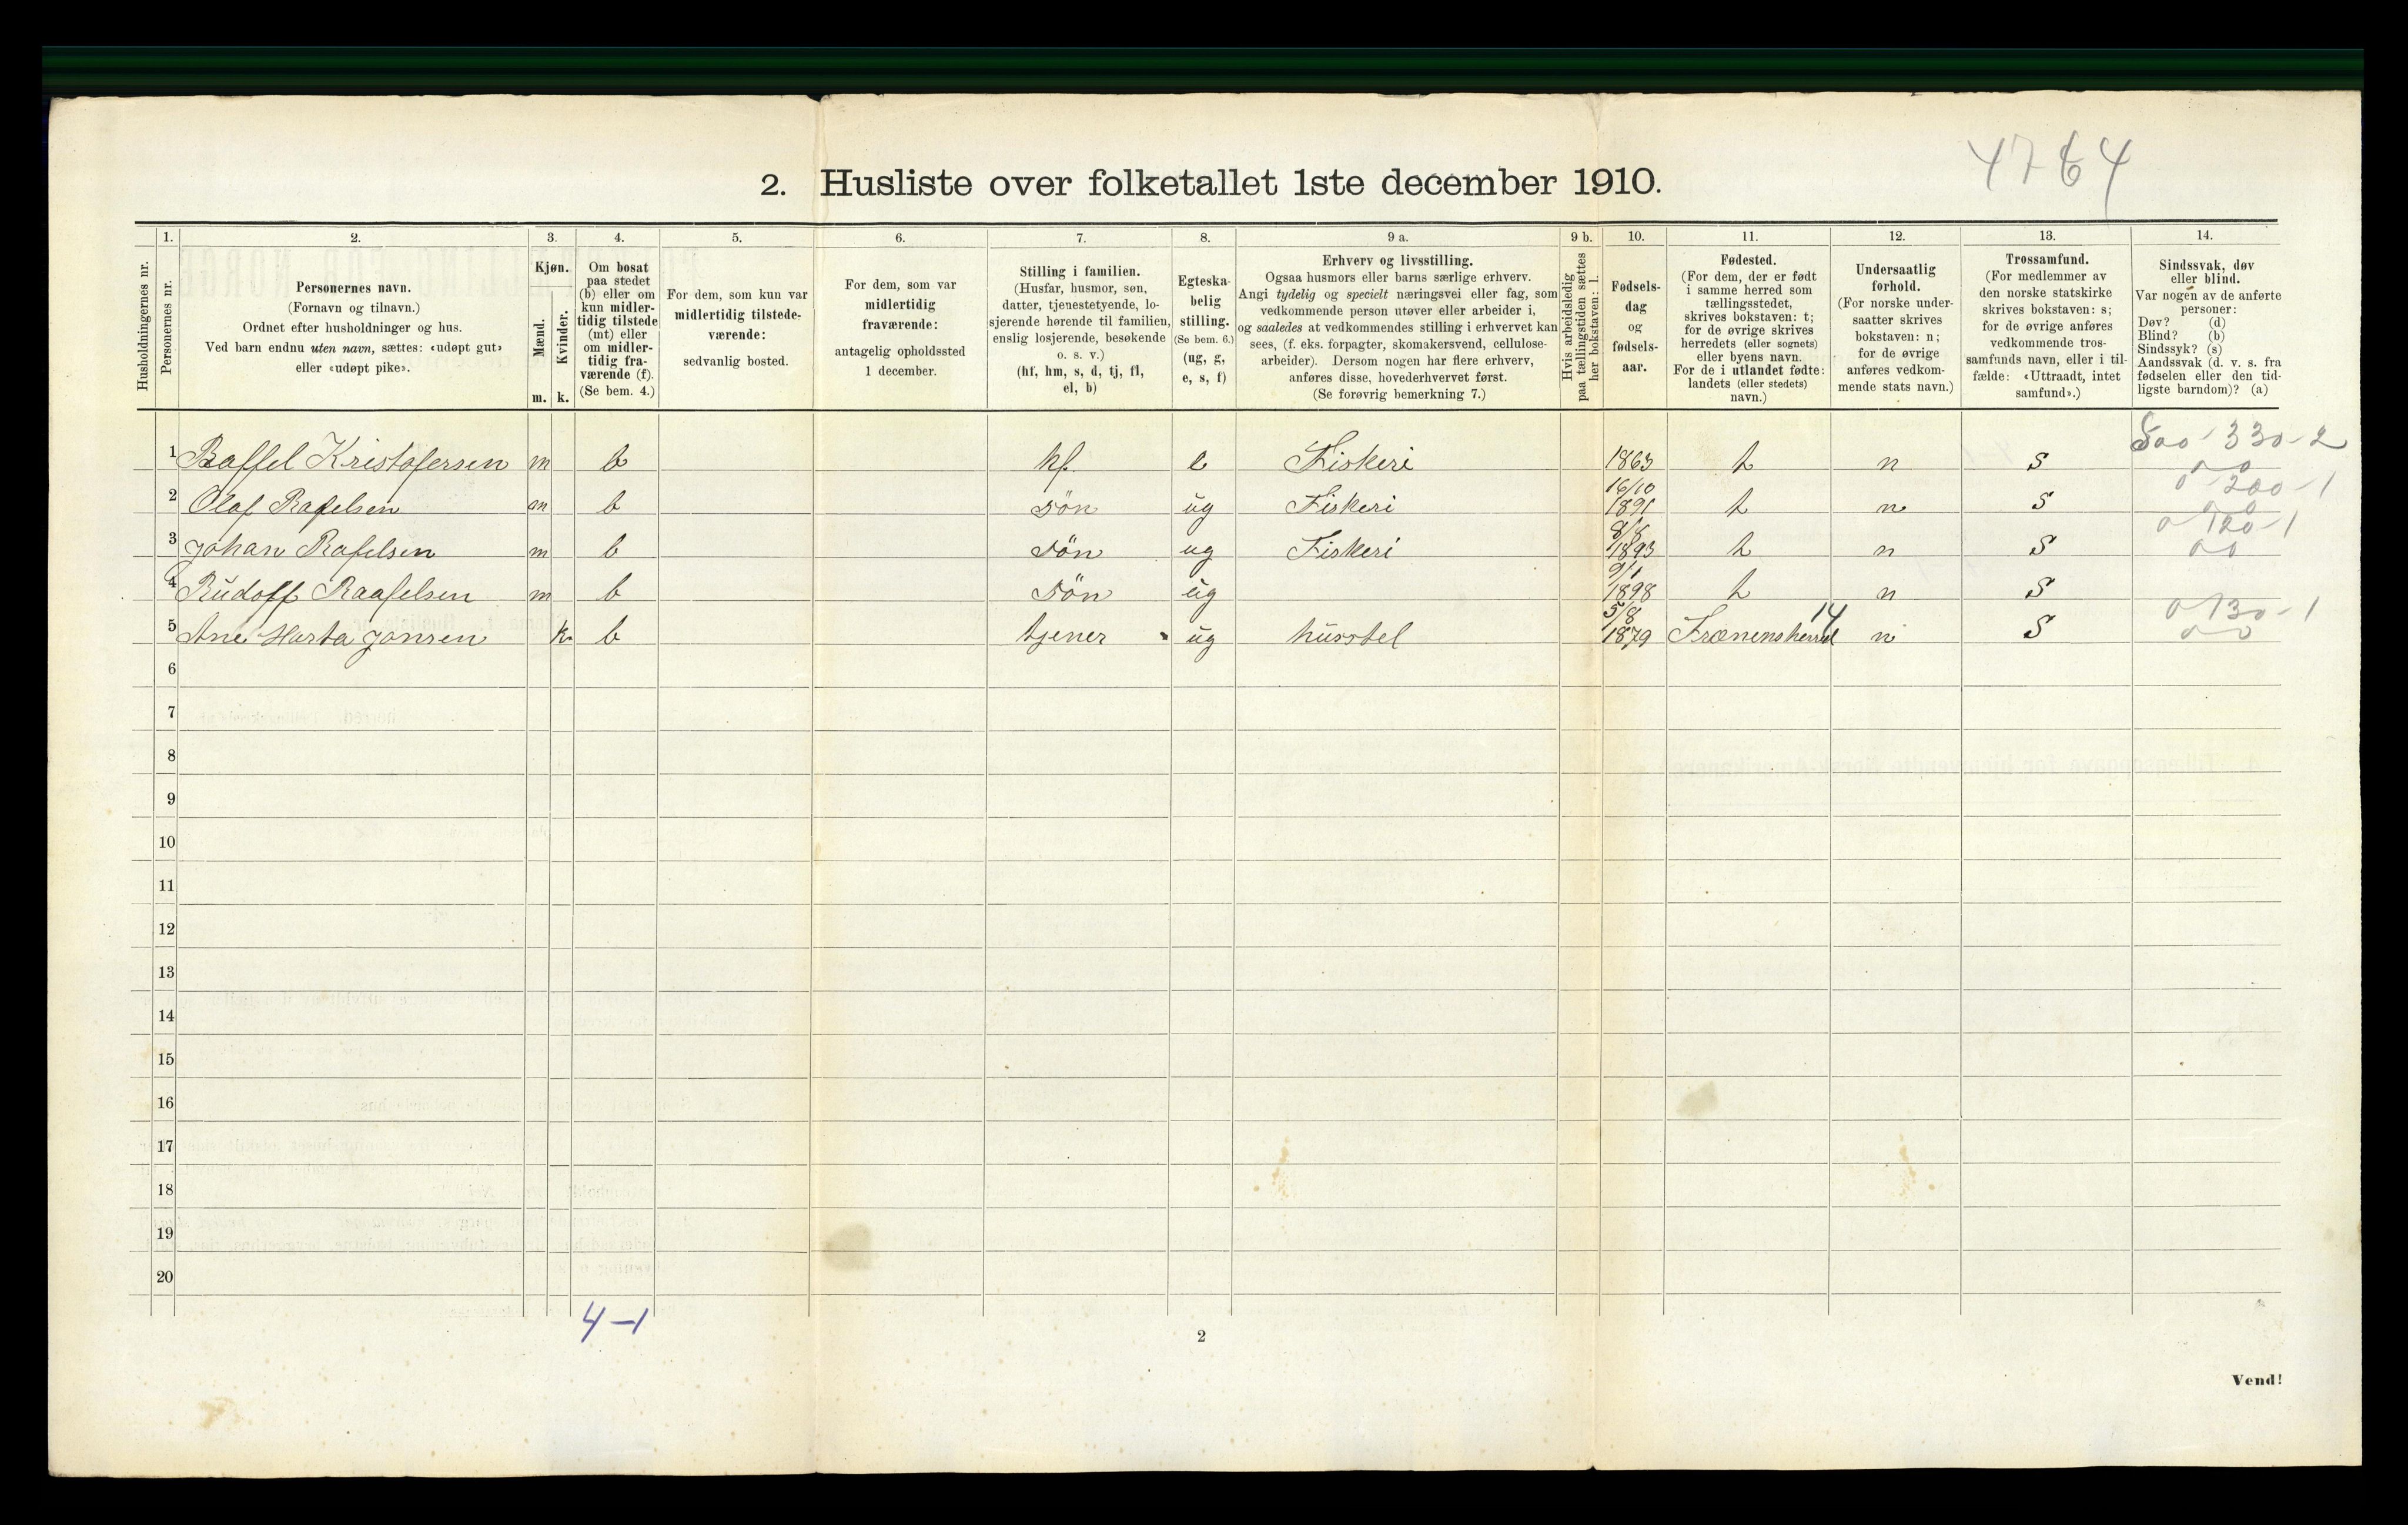 4764
2. Husliste over folketallet 1ste december 1910.
Husholdningernes nr.
1.
Personernes nr.
2.
Personernes navn.
(Fornavn og tilnavn.)
Ordnet efter husholdninger og hus.
Ved barn endnu uten navn, sættes: «udøpt gut»
eller «udøpt pike».
3.
Kjøn.
Mænd.
Kvinder.
m. k.
4.
Om bosat
paa stedet
(b) eller om
kun midler-
tidig tilstede
(mt) eller
om midler-
tidig fra-
værende (f).
(Se bem. 4.)
5.
For dem, som kun var
midlertidig tilstede-
værende:
sedvanlig bosted.
6.
For dem, som var
midlertidig
fraværende:
antagelig opholdssted
1 december.
7.
Stilling i familien.
(Husfar, husmor, søn,
datter, tjenestetyende, lo-
sjerende hørende til familien,
enslig losjerende, besøkende
o. s. v.)
(hf, hm, s, d, tj, fl,
el, b)
8.
Egteska-
belig
stilling.
(Se bem. 6.)
(ug, g,
e, s, f)
9 a.
Erhverv og livsstilling.
Ogsaa husmors eller barns særlige erhverv.
Angi tydelig og specielt næringsvei eller fag, som
vedkommende person utøver eller arbeider i,
og saaledes at vedkommendes stilling i erhvervet kan
sees, (f. eks. forpagter, skomakersvend, cellulose-
arbeider). Dersom nogen har flere erhverv,
anføres disse, hovederhvervet først.
(Se forøvrig bemerkning 7.)
9 b.
Hvis arbeidsledig
paa tællingstiden sættes
her bokstaven: l.
10.
Fødsels-
dag
og
fødsels-
aar.
11.
Fødested.
(For dem, der er født
i samme herred som
tællingsstedet,
skrives bokstaven: t;
for de øvrige skrives
herredets (eller sognets)
eller byens navn.
For de i utlandet fødte:
landets (eller stedets)
navn.)
12.
Undersaatlig
forhold.
(For norske under-
saatter skrives
bokstaven: n;
for de øvrige
anføres vedkom-
mende stats navn.)
13.
Trossamfund.
(For medlemmer av
den norske statskirke
skrives bokstaven: s;
for de øvrige anføres
vedkommende tros-
samfunds navn, eller i til-
fælde: «Uttraadt, intet
samfund».)
14.
Sindssvak, døv
eller blind.
Var nogen av de anførte
personer:
Døv? (d)
Blind? (b)
Sindssyk? (s)
Aandssvak (d. v. s. fra
fødselen eller den tid-
ligste barndom)? (a)
1 Baffel Kristofersen m b hf. e Fiskeri 1863 t n S 500-330-2
0 0
2 Olaf Rafelsen m b Søn ug Fiskeri 16/10 1891 t n S 0-200-1
0 0
3 Johan Rafelsen m b Søn ug Fiskeri 8/8 1893 t n S 0-120-1
0 0
4 Rudoff Raafelsen m b Søn ug 9/1 1898 t n S
5 Ane Marta Jonsen k b tjener ug husstel 5/8 1879 Frænens herred 14 n S 0-130-1
0 0
6
7
8
9
10
11
12
13
14
15
16
17
18
19
20
4-1
2
Vend!